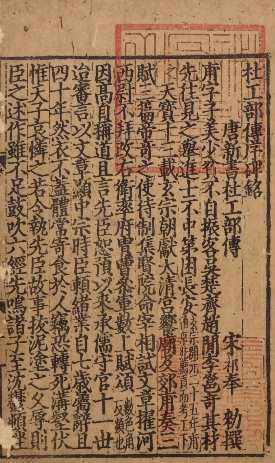 杜工部傳序碑銘
唐新書杜工部傳
宋祁奉勑撰
甫字子美少貧不自振客吳越齊趙間李邕奇其材
先往見之舉進士不中第困長安
天寶十三載玄宗朝獻太清宮饗廟及郊甫奏三
賦三篇帝奇之使待制集賢院命宰相試文章擢河
西尉不拜改右衛率府冑曹參軍數上賦頌
因高自稱道且言先臣恕預以來承儒守官十一世
迨審言以文章顯中宗時臣賴緒業自七歲屬辭且
四十年然衣不蓋體常寄食於人竊恐轉死溝壑伏
惟天子哀憐之若令執先臣故事拔泥塗之久辱則
臣之述作雖不足鼓吹六經先鳴諸子至沈鬱頓挫